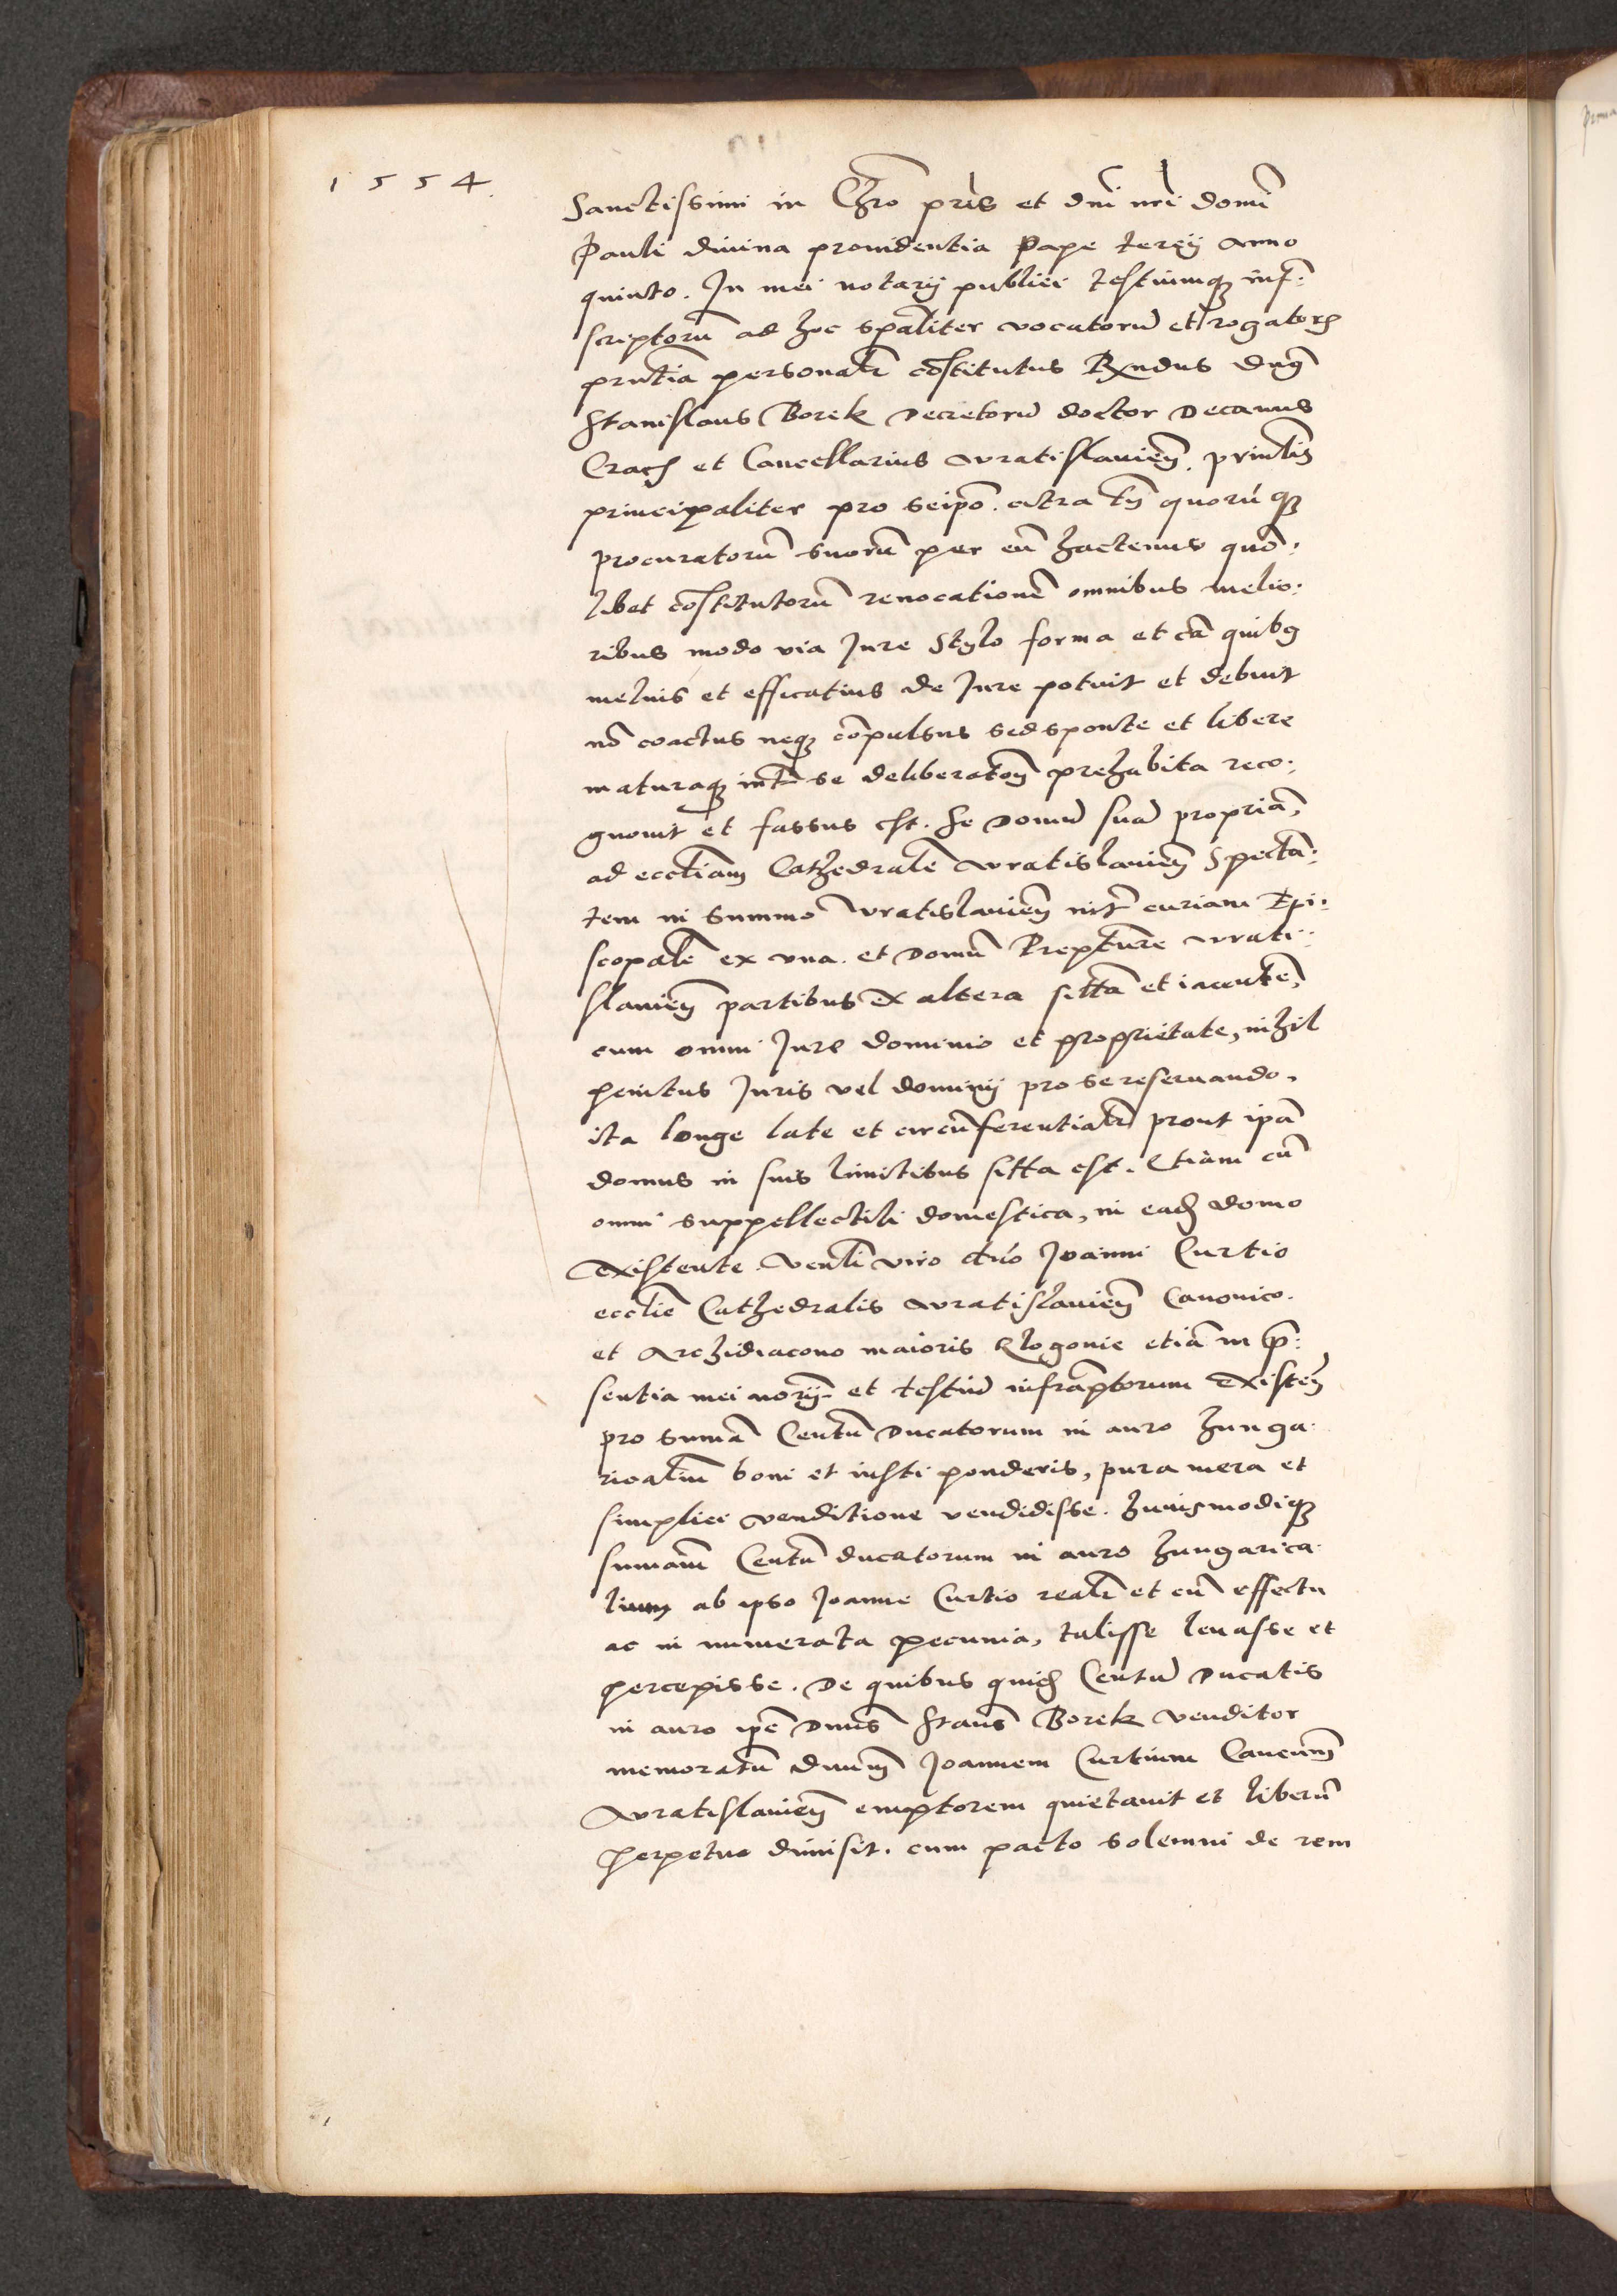 1554.
Sanctissimi in Chro pris et dni nri domi
Pauli diuina prouidentia Pape tercij anno
quinto. In mei notarij publici testiumq3 inf:
scriptorũ ad hoc spaliter vocatorũ et rogatorꝝ
pñtia personalr cõstitutus Rxndus dnꝯ
Stanislaus Borek Decretorũ doctor Decanus
Cracꝭ et Cancellarius wratislauieñ. princi
principaliter pro seipõ. citra tñ quorũcq3
procuratorũ suorũ per eũ hactenus quõ:
libet cõstitutorũ reuocationẽ omnibus melio:
ribus modo via Jure Stylo forma et cã quibꝯ
melius et efficatius de Jure potuit et debuit
nõ coactus neq3 cõpulsus sed sponte et libere
maturaq3 intr se deliberatoñ prehabita reco:
gnouit et fassus est. se Domũ suã propriã,
ad eccliam Cathedralẽ wratislauieñ Spectã:
tem in Summo wratislauieñ intr curiam Epi:
scopalẽ ex vna. et Domũ Prepture wrati:
slauieñ partibus ex altera sittã et iacentẽ,
cum omni Jure dominio et proprietate, nihil
penitus Juris vel dominij pro se reseruando,
ita longe late et circũferentialr prout ipã
domus in suis limitibus sitta est. Etiam cũ
omni suppellectili domestica, in eadꝭ domo
existente. venli viro dño Joanni Curtio
ecclie Cathedralis wratislauieñ Canonico.
et Archidiacono maioris Glogouie etiã in p̃:
sentia mei norij et testiũ infrãptorum existeñ
pro sum̃a Centũ Ducatorum in auro hunga:
ricaliũ boni et iusti ponderis, pura mera et
simplici venditione vendidisse. huiusmodiq3
sum̃am Centũ ducatorum in auro hungarica:
lium ab ipso Joanne Curtio realr et cũ effectu
ac in numerata pecunia, tulisse leuasse et
percepisse. De quibus quidꝭ Centũ Ducatis
in auro ipẽ Dnus Stans Borek venditor
memoratũ dnum Joannem Curtium Cancum
wratislauieñ emptorem quietauit et liberũ
perpetuo dimisit. cum pacto solemni de rem